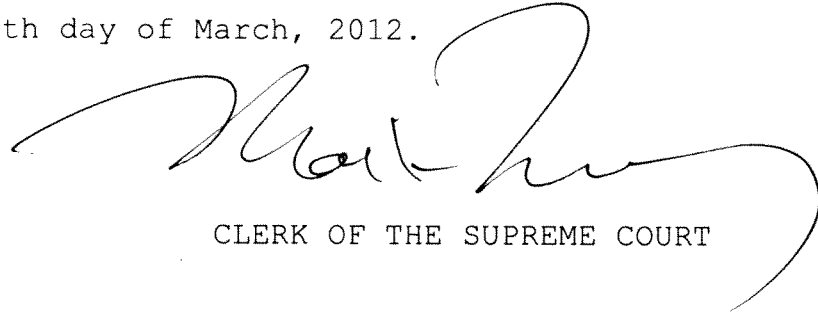 th day of March, 2012.
Mark
CLERK OF THE SUPREME COURT